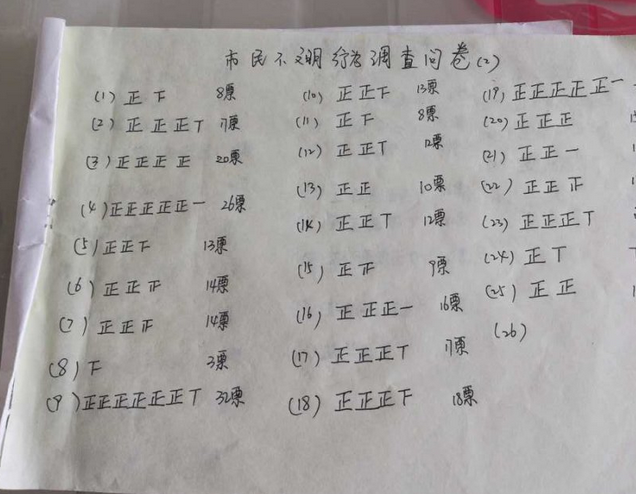 市民不文明行为调查问卷(2)
(1) 正下 8票
(2) 正正正丅 17票
(3) 正正正正 20票
(4) 正正正正正一 26票
(5) 正正下 13票
(6) 正正正 14票
(7) 正正正 14票
(8) 下 3票
(9) 正正正正正正丅 32票
(10) 正正下 13票
(11) 正下 8票
(12) 正正丅 12票
(13) 正正 10票
(14) 正正丅 12票
(15) 正正 9票
(16) 正正正一 16票
(17) 正正正丅 17票
(18) 正正正下 18票
(19) 正正正正正一
(20) 正正正
(21) 正正一
(22) 正正
(23) 正正正丅
(24) 正丅
(25) 正正
(26)